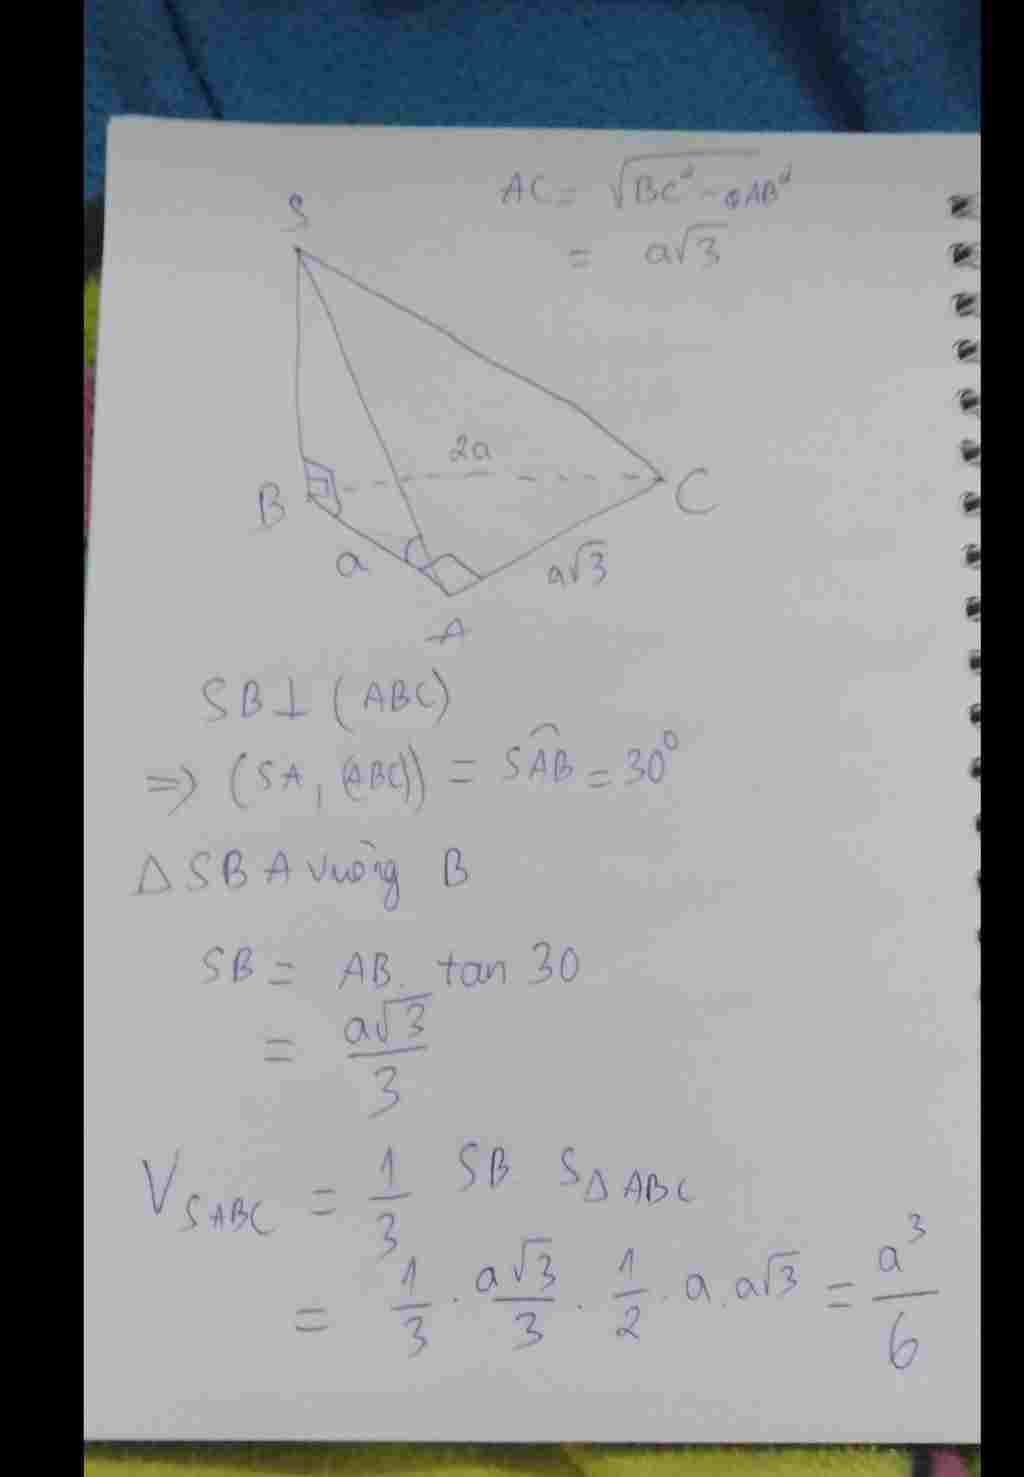 AC = √BC² - AB²
= a√3
S
2a
B
C
a
a√3
A
SB ⊥ (ABC)
=> (SA, (ABC)) = SAB = 30⁰
Δ SBA vuông B
SB = AB. tan 30
= a√3/3
V SABC = 1/3 SB S Δ ABC
= 1/3 . a√3/3 . 1/2 . a . a√3 = a³/6